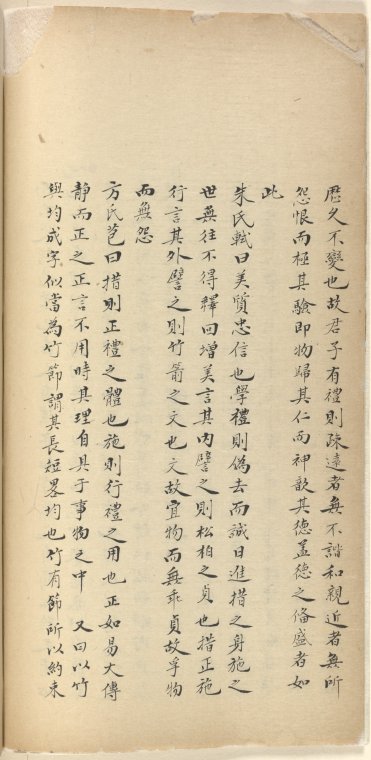 歷久不變也故君子有禮則疎遠者無不諧和親近者無所
怨恨而極其驗即物歸其仁而神歆其德葢德之俻盛者如
此
朱氏軾曰美質忠信也學禮則偽去而誠日進措之身施之
世無往不得釋回增美言其內譬之則松柏之貞也措正施
行言其外譬之則竹箭之文也文故宜物而無乖貞故孚物
而無怨
方氏苞曰措則正禮之體也施則行禮之用也正如易大傳
靜而正之正言不用時其理自具于事物之中 又曰以竹
與均成字似當為竹節謂其長短畧均也竹有節所以約束